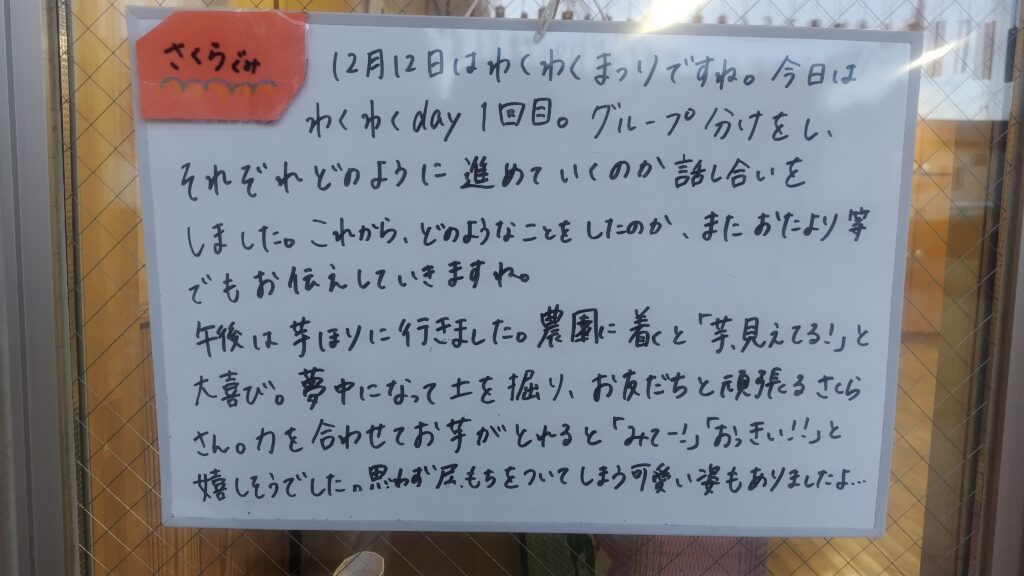 さくらぐみ
12月12日はわくわくまつりですね。今日は
わくわくday 1回目。グループ分けをし、
それぞれどのように進めていくのか話し合いを
しました。これから、どのようなことをしたのか、またおたより等
でもお伝えしていきますね。
午後は芋ほりに行きました。農園に着くと「芋、見えてる!」と
大喜び。夢中になって土を掘り、お友だちと頑張るさくら
さん。力を合わせてお芋がとれると「みてー!」「おっきい!!」と
嬉しそうでした。思わず尻もちをついてしまう可愛い姿もありましたよ…